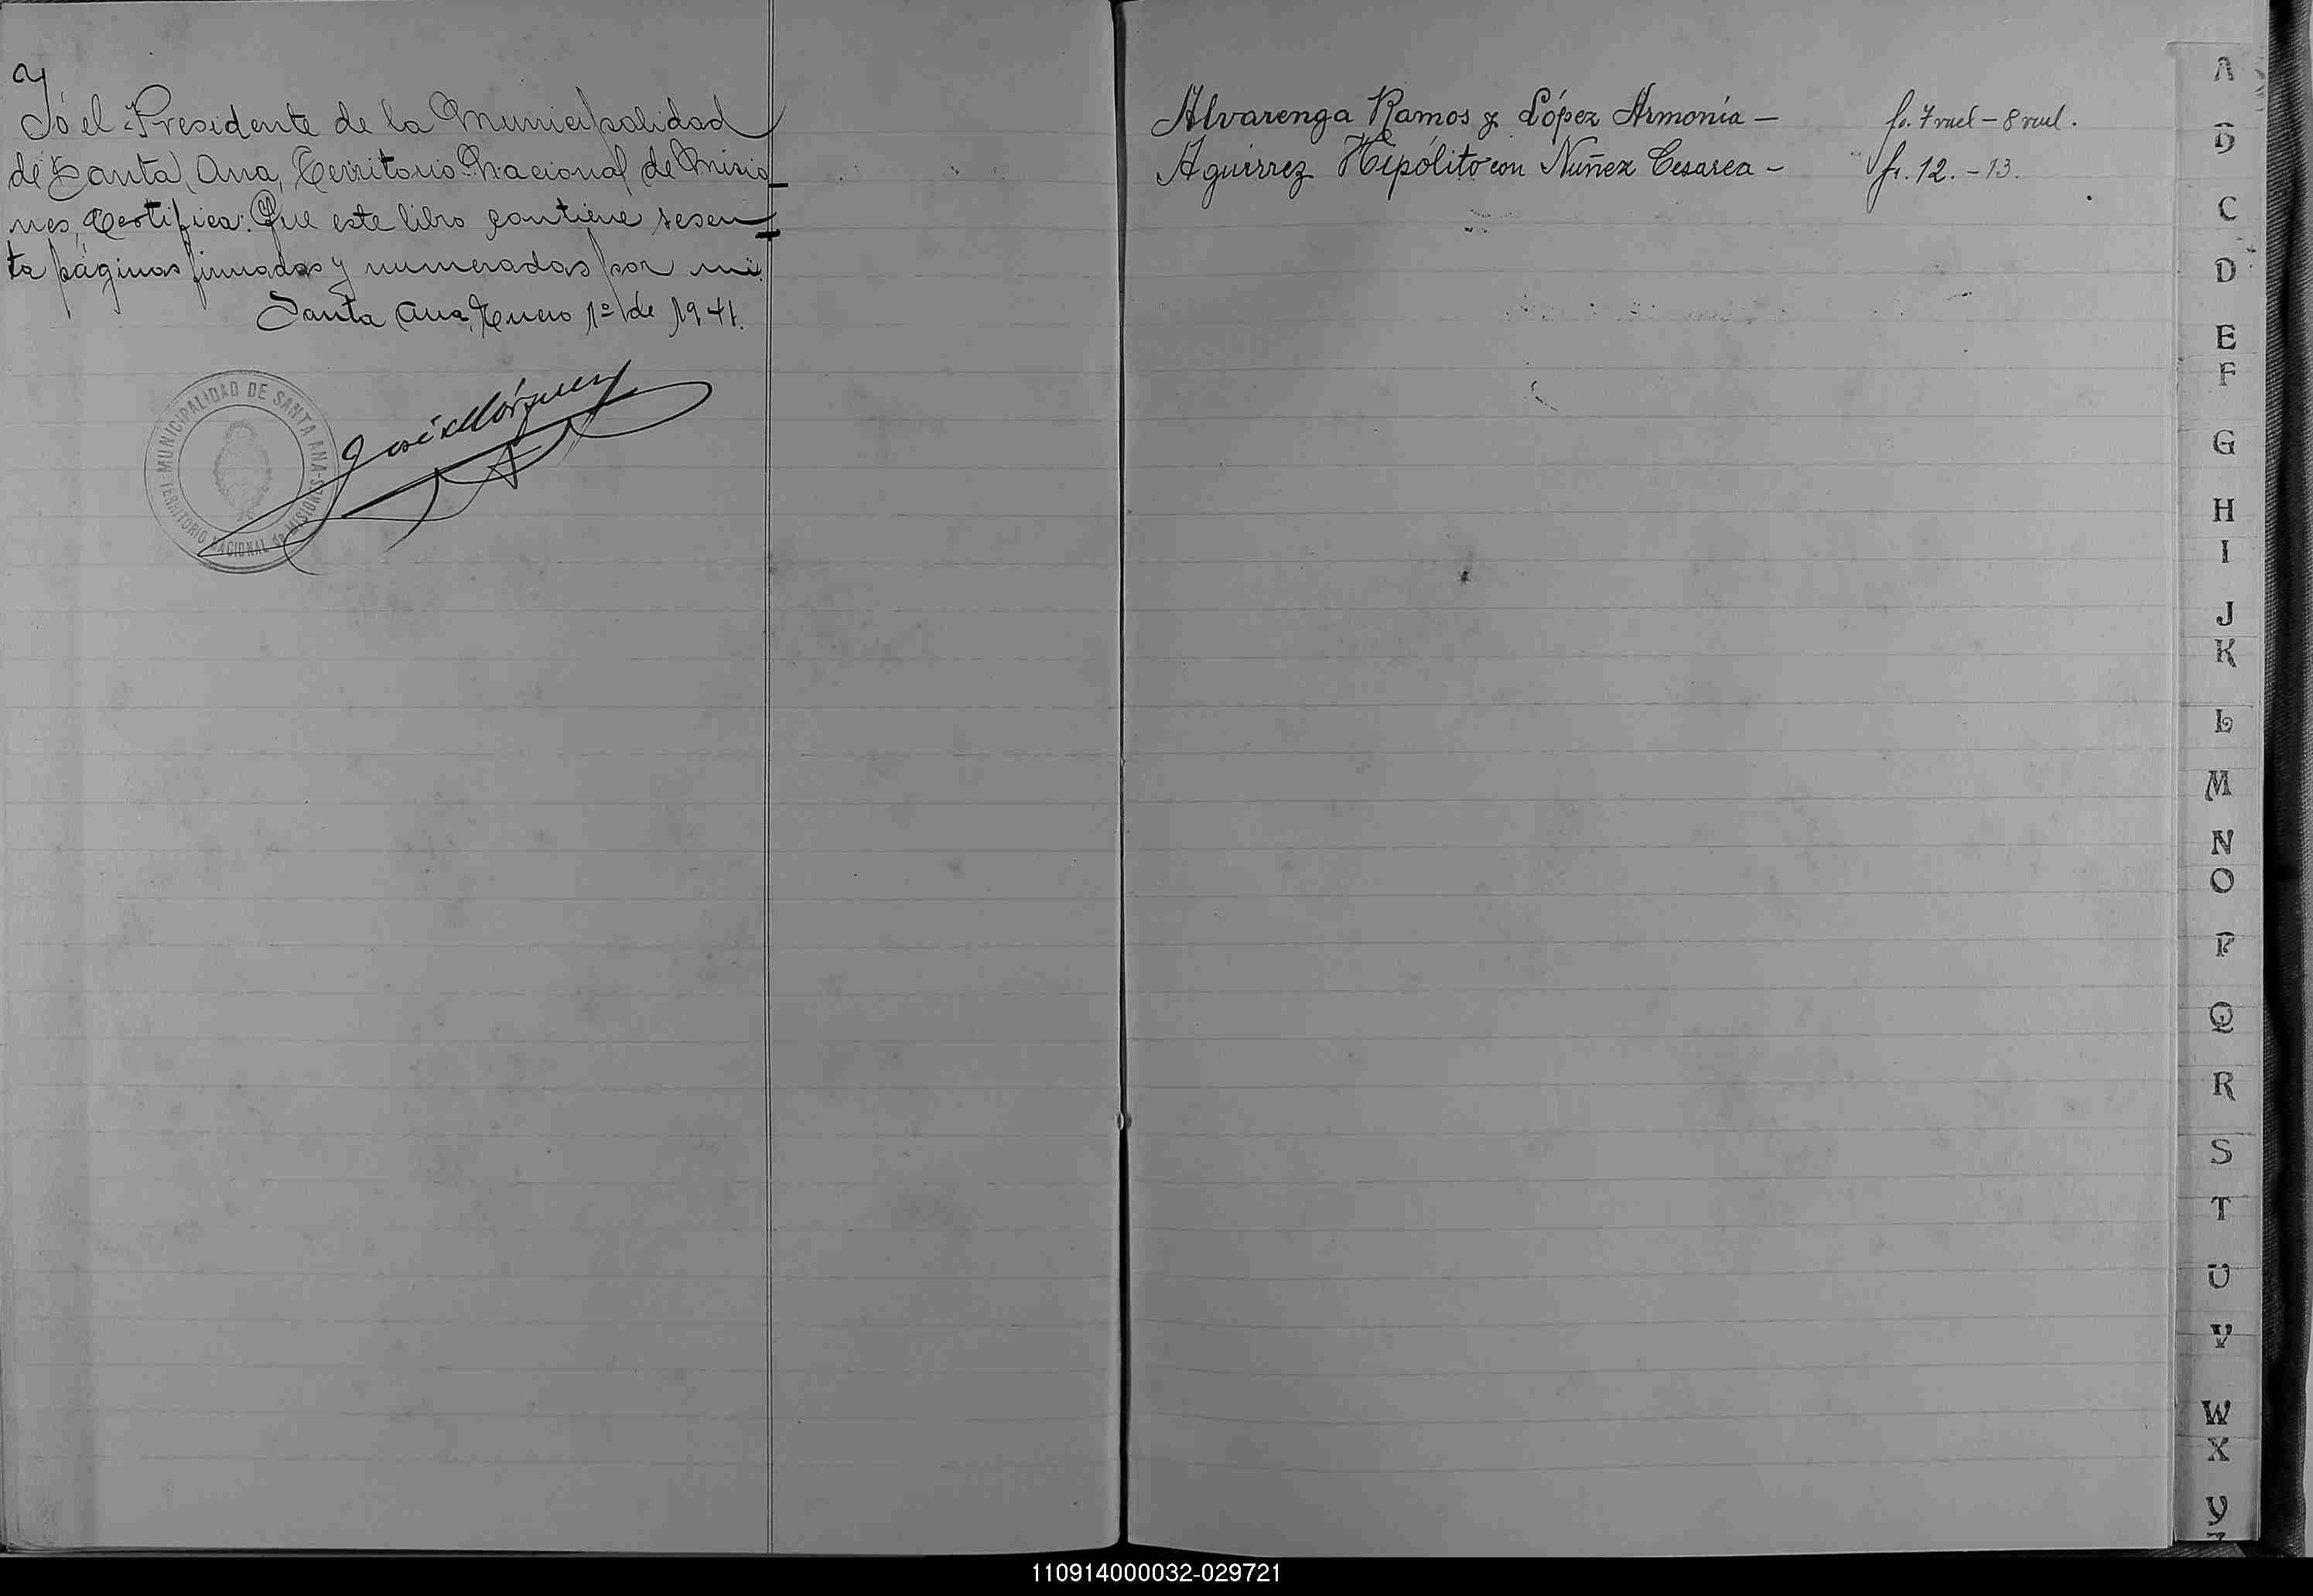 Yo el Presidente de la Municipalidad
de Santa Ana, Territorio Nacional de Misio
nes, Certifica: Que este libro contiene sesen
ta páginas firmadas y numeradas por mi.
Santa Ana, Enero 1º de 1941.
MUNICIPALIDAD DE SANTA ANA
TERRITORIO NACIONAL DE MISIONES
José Márquez
Alvarenga Ramos y López Armonía — fo. 7 vuel – 8 vuel.
Aguirrez Hipólito con Nuñez Cesarea – fo. 12. – 13.
A
B
C
D
E
F
G
H
I
J
K
L
M
N
O
P
Q
R
S
T
U
V
W
X
Y
Z
110914000032-029721